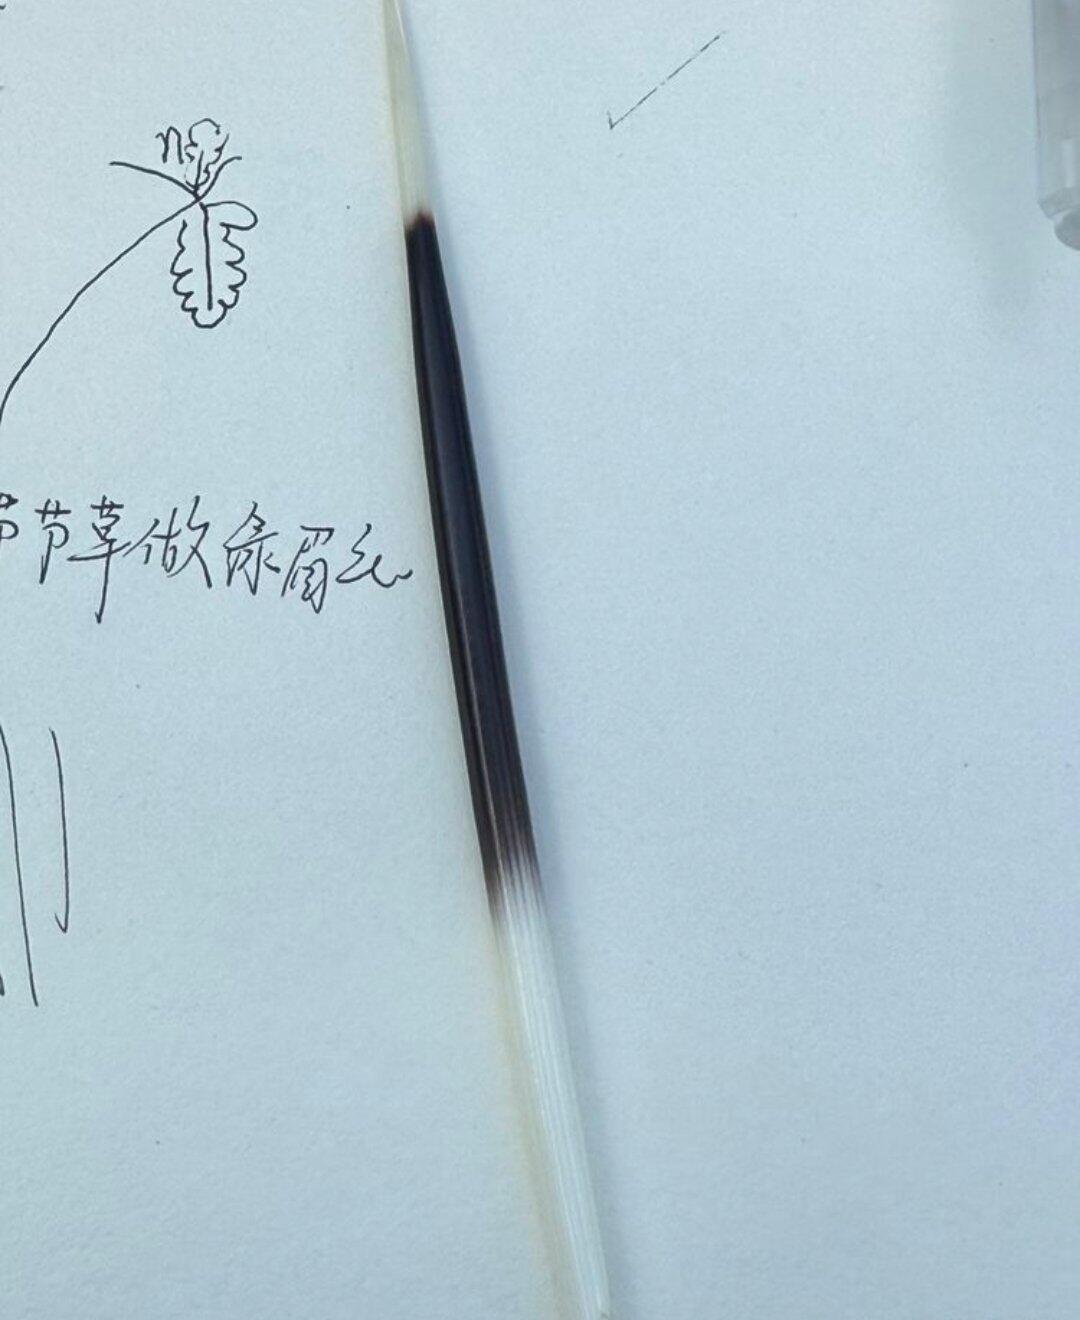 节节草做条眉毛